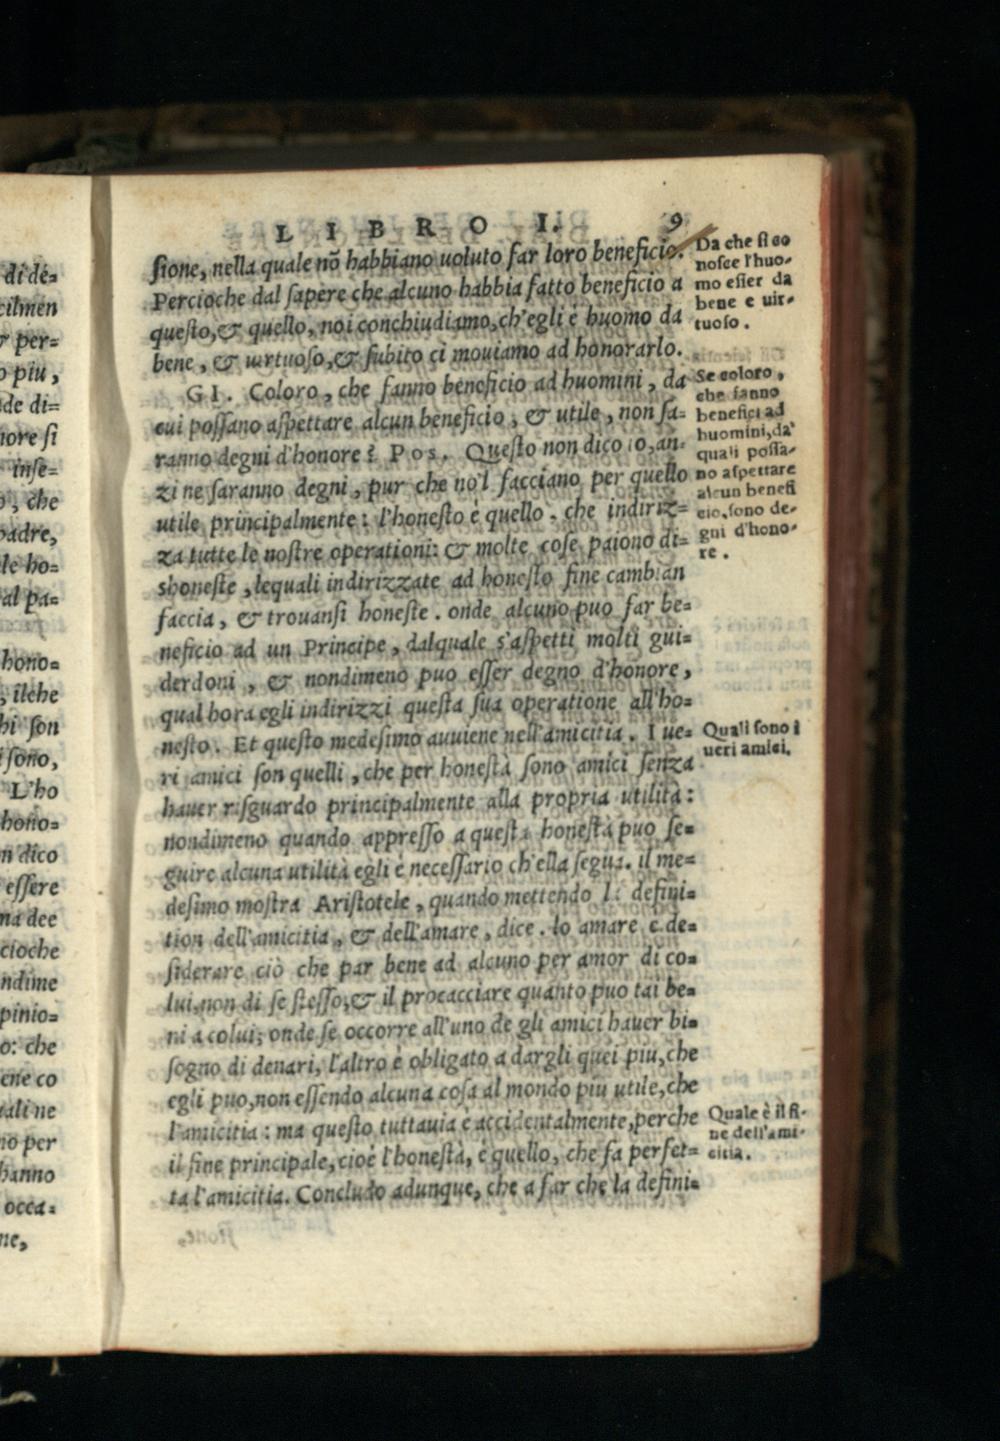 di dé=
cilmen
& per=
o piu,
de di=
iore si
inse=
o, che
padre,
le ho=
al pa=
hono=
, ilche
hi son
i sono,
L'ho
hono=
n dico
essere
na dee
cioche
ndime
pinio=
o: che
ene co
iali ne
no per
hanno
occa=
ne,
LIBRO I. 9
sione, nella quale nō habbiano uoluto far loro beneficio.
Percioche dal sapere che alcuno habbia fatto beneficio a
questo, & quello, noi conchiudiamo, ch'egli è huomo da
bene, & uirtuoso, & subito ci mouiamo ad honorarlo.
GI. Coloro, che fanno beneficio ad huomini, da
cui possano aspettare alcun beneficio, & utile, non sa=
ranno degni d'honore? Pos. Questo non dico io, an=
zi ne saranno degni, pur che no'l facciano per quello
utile principalmente: l'honesto è quello, che indiriz=
za tutte le nostre operationi: & molte cose paiono di=
shoneste, lequali indirizzate ad honesto fine cambian
faccia, & trouansi honeste. onde alcuno puo far be=
neficio ad un Principe, dalquale s'aspetti molti gui=
derdoni, & nondimeno puo esser degno d'honore,
qual hora egli indirizzi questa sua operatione all'ho=
nesto. Et questo medesimo auuiene nell'amicitia. I ue=
ri amici son quelli, che per honestà sono amici senza
hauer risguardo principalmente alla propria utilità:
nondimeno quando appresso a questa honestà puo se=
guire alcuna utilità egli è necessario ch'ella segua. il me=
desimo mostra Aristotele, quando mettendo la defini=
tion dell'amicitia, & dell'amare, dice. lo amare è de=
siderare ciò che par bene ad alcuno per amor di co=
lui, non di se stesso, & il procacciare quanto puo tai be=
ni a colui; onde se occorre all'uno de gli amici hauer bi=
sogno di denari, l'altro è obligato a dargli quei piu, che
egli puo, non essendo alcuna cosa al mondo piu utile, che
l'amicitia: ma questo tuttauia è accidentalmente, perche
il fine principale, cioè l'honestà, è quello, che fa perfet=
ta l'amicitia. Concludo adunque, che a far che la defini=
Da che si co
nosce l'huo-
mo esser da
bene e uir-
tuoso.
Se coloro,
che fanno
benefici ad
huomini, da'
quali possa-
no aspettare
alcun benefi
cio, sono de-
gni d'hono-
re.
Quali sono i
ueri amici.
Quale è il fi-
ne dell'ami-
citia.